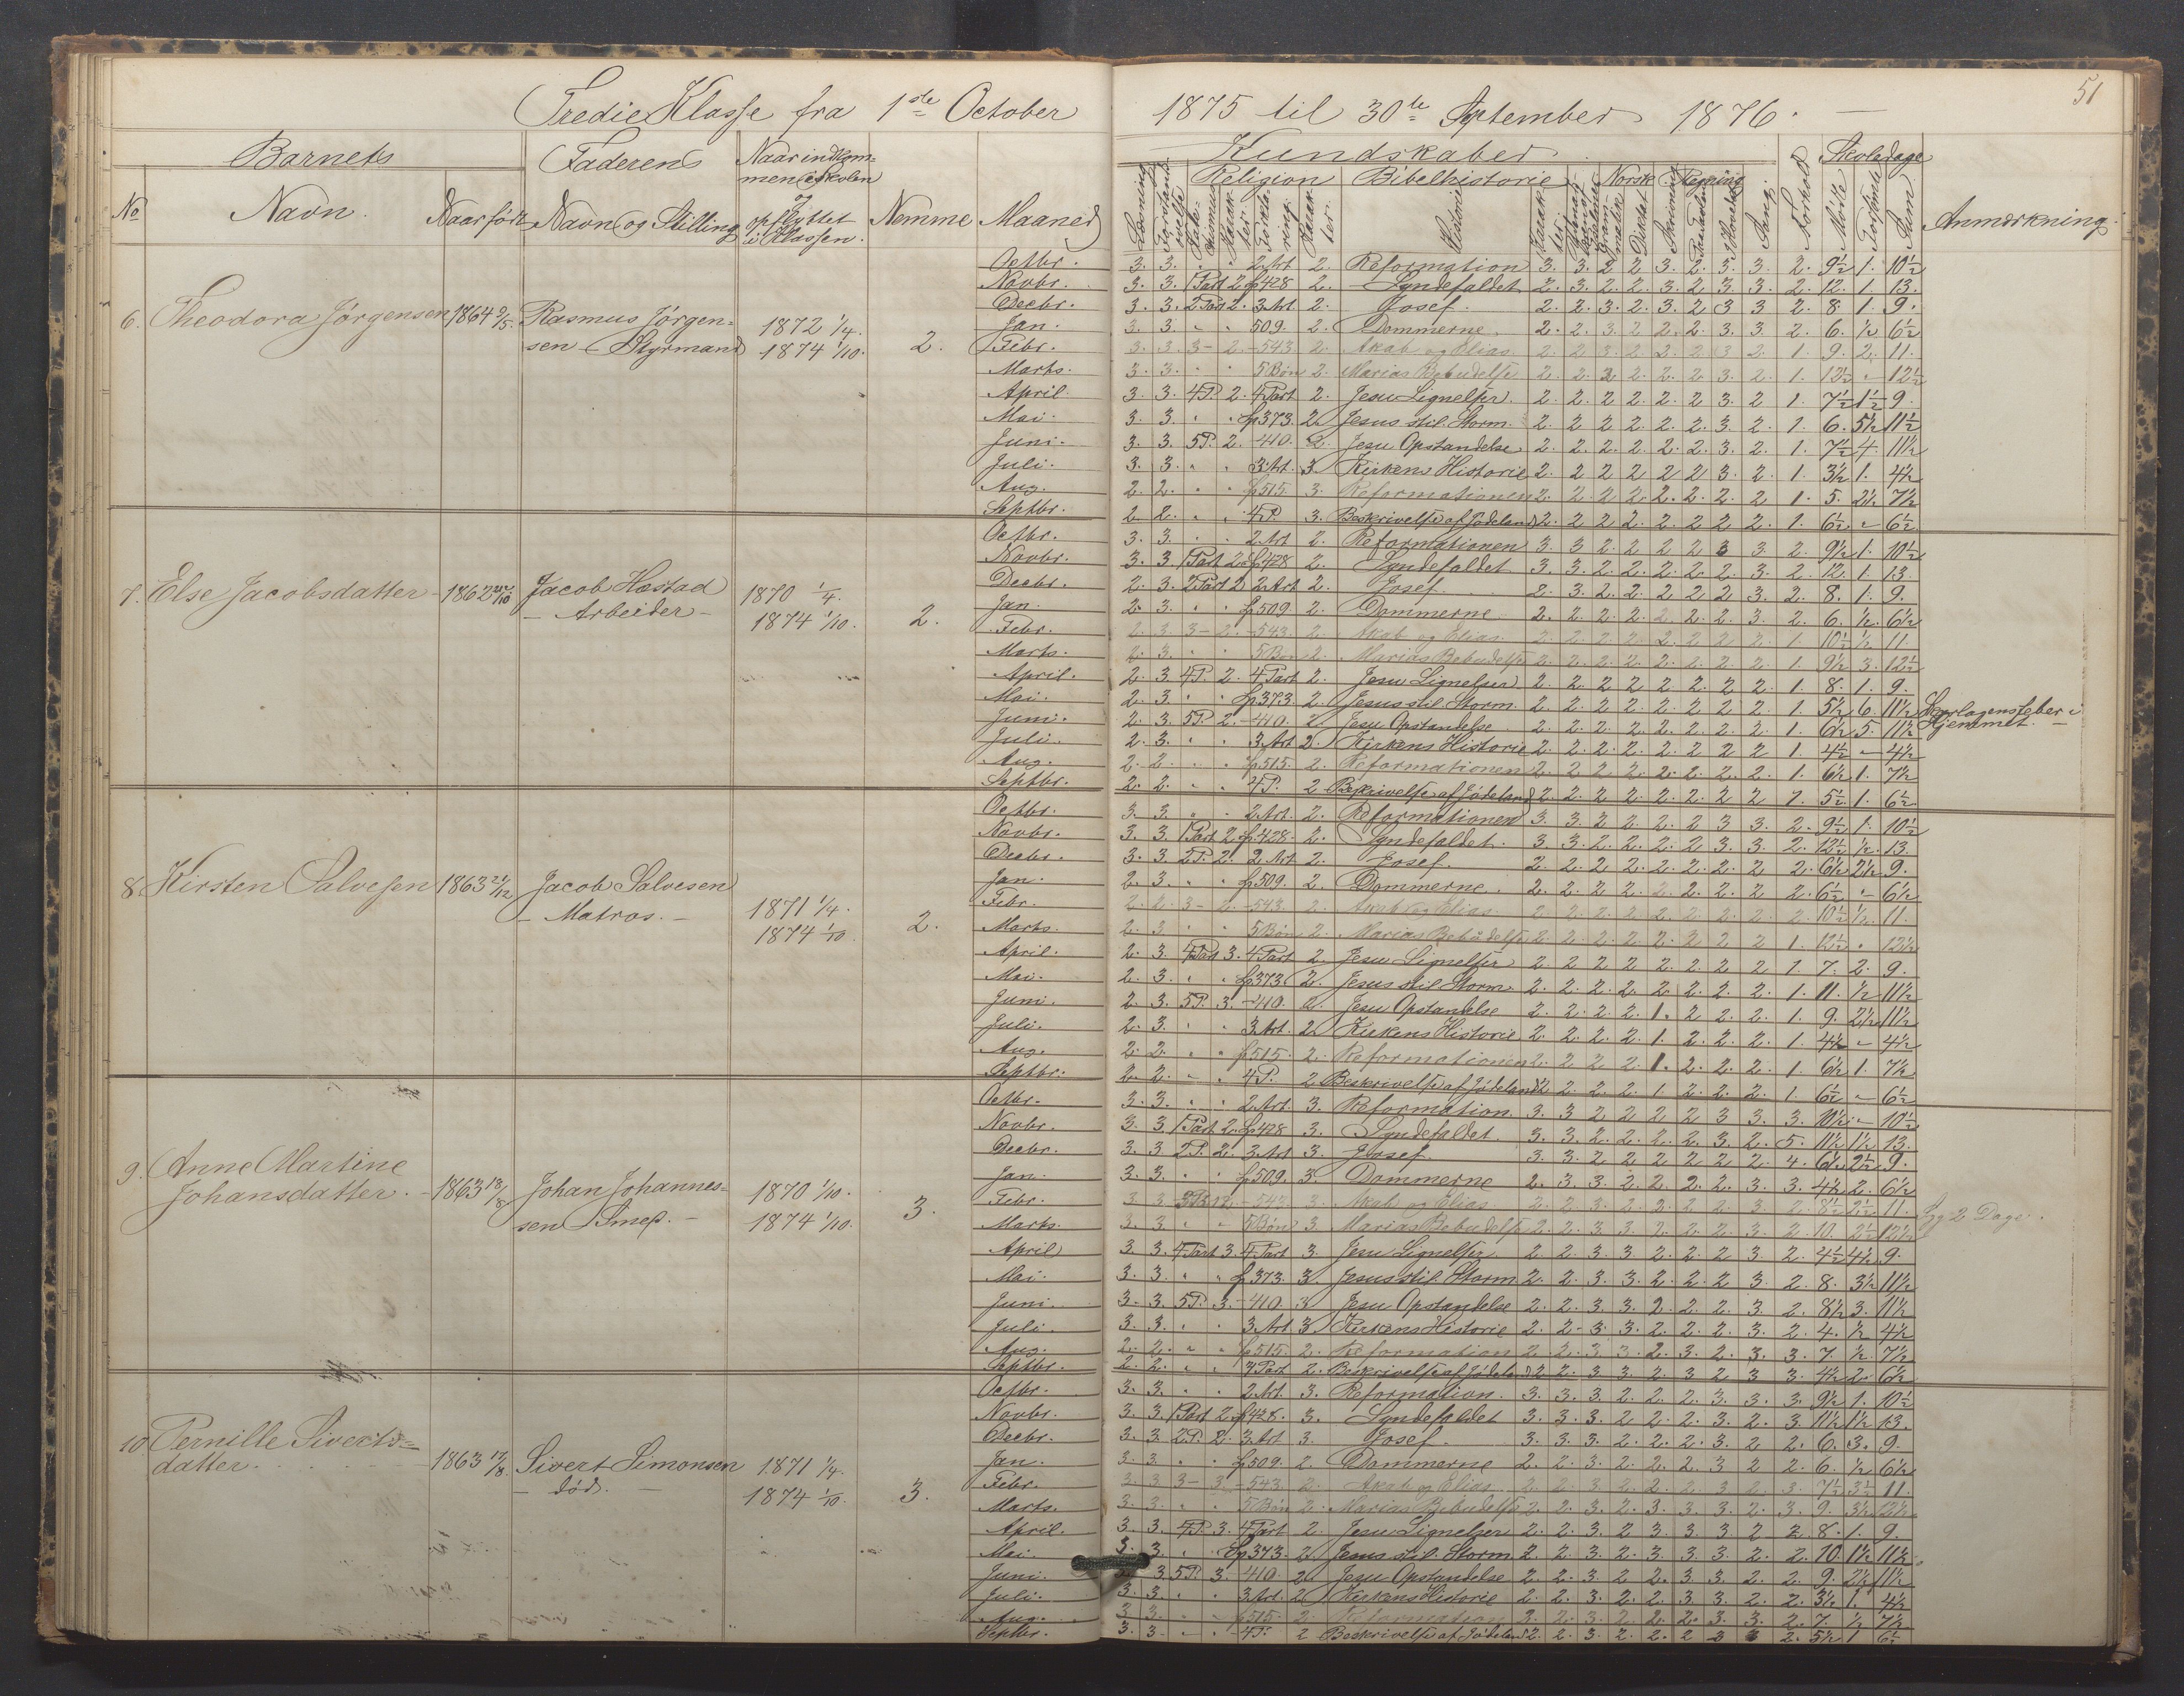 51
Tredie Klasse fra 1ste October 1875 til 30te September 1876.
Barnets Faderens Naar indkommen i Skolen og opflyttet i Klassen. Nemme Maaned Kundskaber Forhold Skoledage Anmærkning.
No Navn. Naar født Navn og Stilling Religion Bibelhistorie Norsk Regning Sang. Mødte Forsømte Sum
6. Theodora Jørgensen 1864 9/5. Rasmus Jørgensen Styrmand 1872 1/4. 1874 1/10. 2.
Octbr. 3. 3. " " 2 Art 2. Reformation 3. 3. 2 2 3. 2. 3. 3. 2. 9½ 1. 10½
Novbr. 3. 3. 1 Part 2. Sp 428 2. Syndefaldet 2. 3. 2. 2. 3. 2 3. 3. 2. 12. 1. 13.
Decbr. 3. 3. 2 Part 2. 3 Art 2. Josef. 2. 2. 3. 2. 3. 2 3 3 2. 8. 1. 9.
Jan. 3. 3. " " 509. 2. Dommerne. 2. 2. 3. 2 2. 2 3. 3. 2. 6. ½ 6½
Febr. 3. 3. 3 - 2. - 543. 2. Akab og Elias. 2. 2 3. 2. 2. 2 3 2. 1. 9. 2. 11.
Marts. 3. 3. " " 5 Bøn 2. Marias Bebudelse 2. 2. 3 2. 2. 2 3. 2. 1. 12½ " 12½
April. 3. 3. 4 P. 2. 4 Part 2. Jesu Lignelser. 2. 2. 2 2. 2. 2 3. 2 1. 7½ 1½ 9.
Mai. 3. 3. " " Sp 373. 2. Jesus stil. Storm. 2. 2 2 2. 2. 2. 3. 2. 1. 6. 5½ 11½
Juni. 3. 3. 5 P. 2. - 410. 2. Jesu Opstandelse 2. 2. 2. 2. 2. 2. 3. 2. 1. 7½ 4. 11½
Juli. 3. 3. " " 3 Art. 3. Kirkens Historie 2. 2 2 2 2 2 3. 2. 1. 3½ 1. 4½
Aug. 2. 2. " " Sp 515. 3. Reformationen 2. 2. 2 2. 2. 2. 2. 2 1. 5. 2½ 7½
Septbr. 2. 2. " " 4 P. 3. Beskrivelse af Jødeland 2. 2 2 2. 2. 2 2 2. 1. 6½ - 6½
7. Else Jacobsdatter 1862 Jacob Hæstad - Arbeider - 1870 1/4. 1874 1/10. 2.
Octbr. 3. 3. " " 2 Art 2. Reformationen 3. 3 2. 2 2 2 3 3. 2. 9½ 1. 10½
Novbr. 3. 3. 1 Part 2. Sp 428 2. Syndefaldet 3. 3. 2. 2. 2. 2. 2. 3. 2. 12. 1. 13.
Decbr. 2. 3. 2 Part 2 2 Art 2. Josef. 2. 3. 2. 2. 2 2 2 3. 2. 8. 1. 9.
Jan. 2. 3. " " Sp 509. 2. Dommerne. 2. 2. 2. 2. 2 2. 2. 3. 2. 6. ½. 6½
Febr. 2. 3. 3 - 2. - 543. 2. Akab og Elias. 2. 2. 2. 2. 2. 2 2. 2. 1. 10½ ½ 11.
Marts. 2. 3. " " 5 Bøn 2. Marias Bebudelse 2. 2. 2. 2. 2. 2. 2. 2. 1. 9½ 3. 12½
April. 2. 3. 4 P. 2. 4 Part 2. Jesu Lignelser 2. 2. 2 2 2 2. 2 2. 1. 8. 1. 9.
Mai. 2. 3. " " Sp 373. 2. Jesus stil. Storm. 2. 2. 2. 2. 2. 2 2 2. 1. 5½ 6. 11½ Skarlagensfeber i Hjemmet.
Juni. 2. 3. 5 P. 2. - 410. 2. Jesu Opstandelse 2. 2. 2. 2. 2. 2. 2. 2. 1. 6½ 5. 11½
Juli. 2. 3. " " 3 Art 2. Kirkens Historie 2. 2. 2. 2. 2. 2 2 2 1. 4½ - 4½
Aug. 2. 2. " " Sp 515. 2. Reformationen 2. 2 2 2. 2. 2. 2. 2. 1. 6½ 1. 7½
Septbr. 2. 2. " " 4 P. 2 Beskrivelse af Jødeland 2. 2. 2 2. 2. 2. 2 2 1. 5½ 1. 6½
8. Kirsten Salvesen 1863 21/12 Jacob Salvesen - Matros. - 1871 1/4. 1874 1/10. 2.
Octbr. 3. 3. " " 2 Art. 2. Reformationen 3. 3. 2 2. 2. 2 3 3. 2. 9½ 1. 10½
Novbr. 3. 3. 1 Part 2. Sp 428. 2. Syndefaldet. 3. 3 2. 2. 2. 2 3. 3. 2. 12½ ½. 13.
Decbr. 3. 3. 2 P. 2. 2 Art 2. Josef. 2. 2. 2 2. 2. 2. 2. 2 2. 6½ 2½ 9.
Jan. 2. 3. " " Sp 509. 2. Dommerne. 2. 2. 2 2. 2. 2. 2. 2 2. 6½ - 6½
Febr. 2. 2. 3 - 2. - 543. 2. Akab og Elias. 2. 2. 2. 2. 2. 2. 2. 2. 2. 10½ ½. 11.
Marts. 2. 3 " " 5 Bøn 2. Marias Bebudelse 2. 2. 2. 2. 2. 2 2 2 1. 12½ " 12½
April. 2. 3. 4 Part 3. 4 Part 2. Jesu Lignelser 2. 2 2 2 2. 2. 2 2 1. 7. 2. 9.
Mai. 2. 3. " " Sp 373. 2. Jesus stil. Storm. 2. 2. 2. 2. 2. 2. 2. 2. 1. 11. ½ 11½
Juni. 2. 3. 5 P. 3. - 410. 2. Jesu Opstandelse 2. 2. 2. 2. 1. 2 2. 2. 1. 9. 2½ 11½
Juli. 2. 3. " " 3 Art. 2. Kirkens Historie 2. 2. 2. 2. 1. 2. 2. 2. 1. 4½ - 4½
Aug. 2. 2. " " Sp 515. 2. Reformationen 2. 2. 2 2 1. 2. 2. 2. 1. 6½ 1. 7½
Septbr. 2. 2. " " 4 P. 2 Beskrivelse af Jødeland 2 2. 2. 2. 1 2. 2. 2. 1. 6½ - 6½
9. Anne Martine Johansdatter. 1863 18/8 Johan Johannessen Smed. - 1870 1/10. 1874 1/10. 3.
Octbr. 3. 3. " " 2 Art. 3. Reformation. 3. 3 2 2 2 2 3 3. 3. 10½ - 10½
Novbr. 3. 3. 1 Part 2. Sp 428 3. Syndefaldet. 3. 3. 2. 2. 2. 2. 3. 2. 5. 11½ 1½ 13.
Decbr. 3. 3 2 P. 2. 3 Art 3. Josef. 3. 3. 2 2 2 2 2 2. 4. 6½ 2½ 9.
Jan. 3. 3. " " Sp 509. 3. Dommerne 2. 3. 3. 2. 2. 2. 2. 3. 3. 4½ 2. 6½
Febr. 3. 3 - 543 3. Akab og Elias. 2. 2 3. 2. 2. 2 2. 3. 2. 8½ 2½ 11. Syg 2 Dage.
Marts. 3. 3. " " 5 Bøn 3. Marias Bebudelse 2. 2. 3 3. 2. 2. 2. 3. 2. 10. 2½ 12½
April 3. 3. 4 Part 3. 4 Part 3. Jesu Lignelser. 2. 2. 3 3 2. 2. 2 3 2. 4½ 4½ 9.
Mai. 3. 3. " " Sp 373. 3. Jesus stil. Storm 2. 2. 3. 3. 2. 2. 2 3. 2. 8. 3½ 11½
Juni. 3. 3. 5 P. 3. - 410. 3 Jesu Opstandelse 2. 2. 3 3. 2. 2. 2. 3 2. 8½ 3. 11½
Juli. 3. 3. " " 3 Art 3. Kirkens Historie 2. 2. 3. 3. 2. 2. 2. 3. 2. 4. ½ 4½
Aug. 2. 2. " " Sp 515. 2. Reformation 2. 2. 3. 3. 2. 3. 2. 3. 3. 7. ½. 7½
Septbr. 2. 2. " " 4 Part 2. Beskrivelse af Jødeland 2 2. 3 3 2. 3 2 3 3. 4½ 2. 6½
10 Pernille Sivertsdatter. 1863 17/8. Sivert Simonsen - død. - 1871 1/4. 1874 1/10. 3.
Octbr. 3. 3. " " 2 Art. 3. Reformation. 3. 3. 3. 2. 2. 2. 3. 3. 3. 9½ 1. 10½
Novbr. 3. 3. 1 Part 2. Sp 428. 3. Syndefaldet 3. 3. 3. 2 2. 2. 3. 2. 3 11½ 1½ 13.
Decbr. 3. 3 2 P. 2. 3 Art 3. Josef. 3. 3. 3. 2. 2. 2. 3. 2 2. 6. 3. 9.
Jan. 3. 3 " " Sp 509. 2. Dommerne 2. 2. 3. 2. 2. 2. 3 2 2. 6. ½ 6½
Febr. 3. 3 3 - 3. - 543. 2. Akab og Elias. 2. 2 3. 2. 2. 2 3 2. 3. 7½ 3½ 11.
Marts. 3. 3. " " 5 Bøn 2. Marias Bebudelse 2. 2. 3. 2. 3. 3. 3. 2. 3. 9. 3½ 12½
April. 3. 3. 4 P. 3. 4 Part 2. Jesu Lignelser 2. 2. 3. 2 3. 3. 3 2 2. 8. 1. 9.
Mai. 3. 3. " " Sp 373. 2. Jesus stil. Storm 2. 2 3. 2. 3. 3. 3. 2. 2. 10. 1½ 11½
Juni. 3 5 P. 3. 410. 2. Jesu Opstandelse 2. 2. 3. 2 2. 3 3. 2. 2 9. 2½ 11½
Juli. 3. 3. " " 3 Art. 2. Kirkens Historie 2. 2 3. 2. 2. 3 3. 2. 2. 3½ 1. 4½
Aug. 3 3. " " Sp 515. 2. Reformation 2. 2. 3. 2. 2. 2. 3. 3. 2. 7. ½ 7½
Septbr. 3. 3 " " 4 P. 2 Beskrivelse af Jødeland 2. 2. 3. 2. 2. 2 3 3 2. 5½ 1 6½